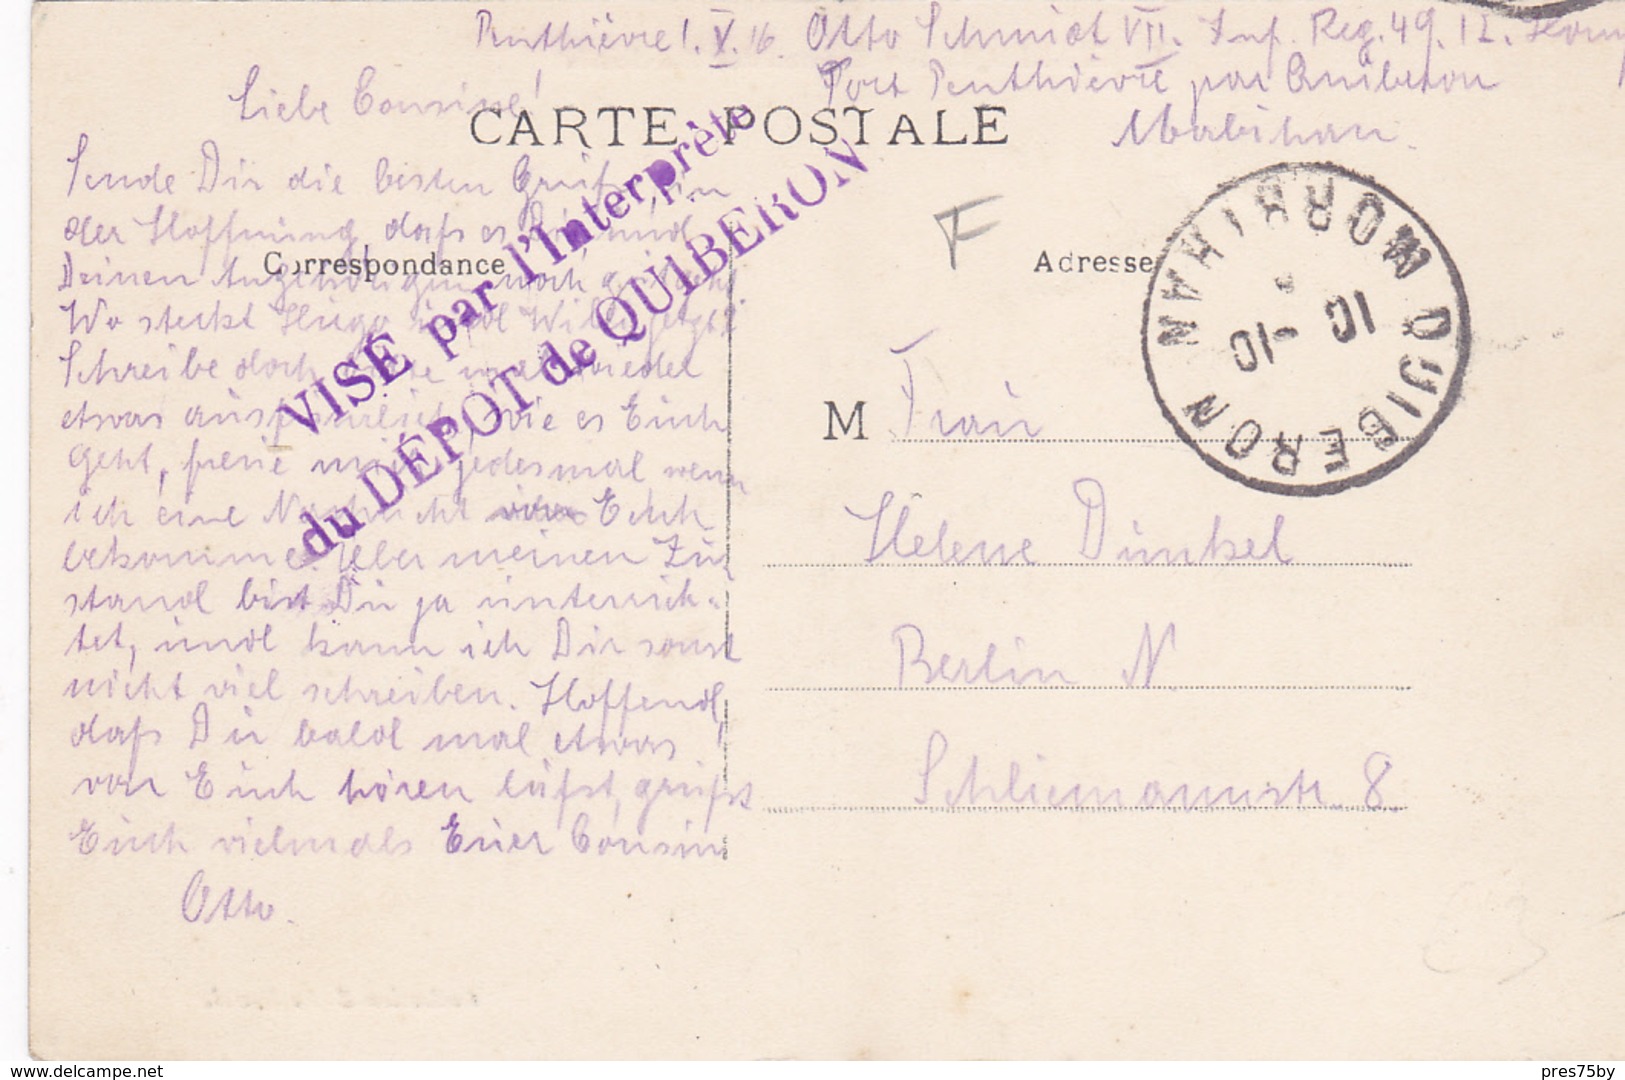 Penthièvre 1. V. 16. Otto Schmidt VII. Inf. Reg. 49. 12. Komp
Fort Penthièvre par Quiberon
Morbihan.
Liebe Cousine!
CARTE POSTALE
Sende Dir die besten Grüße, in
der Hoffnung daß es Dir und
Correspondance
Adresse
Deinen Angehörigen noch gut geht.
Wo steckt Hugo und Willy jetzt?
Schreibe doch bitte mal wieder
etwas ausführlich, wie es Euch
geht, freue mich jedesmal wenn
ich eine Nachricht von Euch
bekomme. Über meinen Zu-
stand bist Du ja unterrich-
tet, und kann ich Dir sonst
nicht viel schreiben. Hoffend,
daß Du bald mal etwas
von Euch hören läßt, grüßt
Euch vielmals Euer Cousin
Otto.
VISÉ par l'Interprète
du DÉPOT de QUIBERON
F
QUIBERON MORBIHAN
10 -10
M Frau
Helene Dunkel
Berlin N.
Schliemannstr. 8.
delcampe.net
pres75by